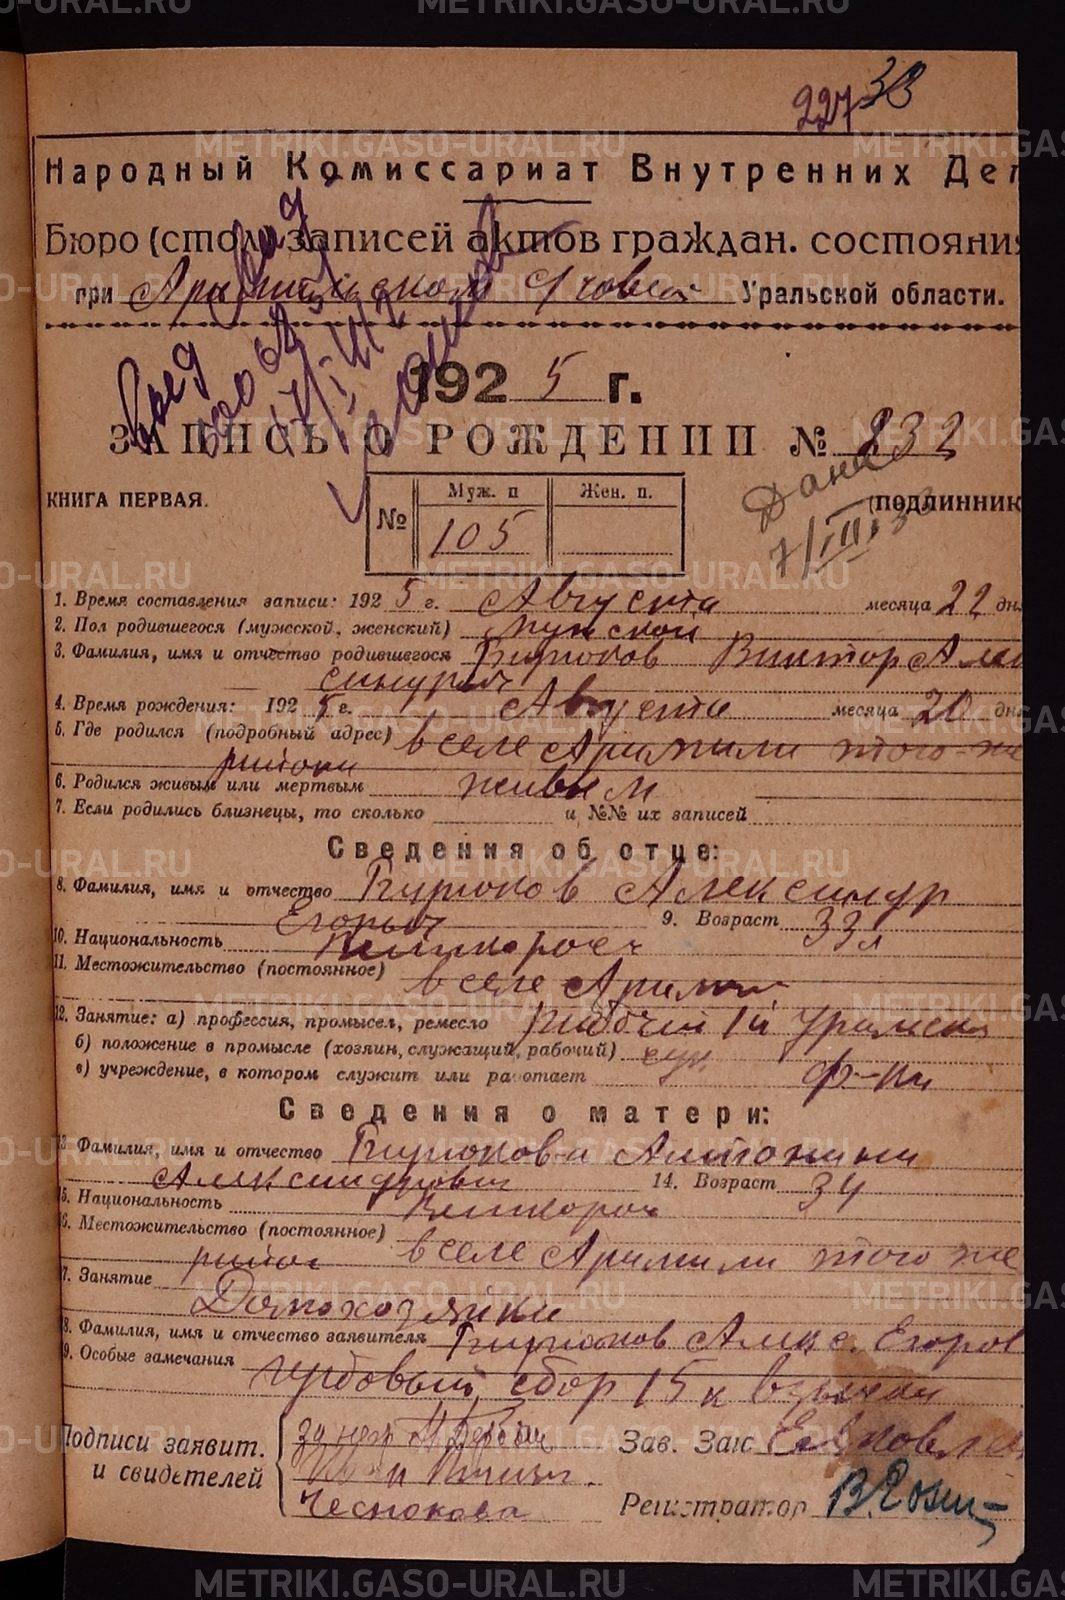 227 38
Народный Комиссариат Внутренних Дел
Бюро (стол) записей актов граждан. состояния
при Арамильском Уральской области.
1925 г.
ЗАПИСЬ О РОЖДЕНИИ № 232
Дана
КНИГА ПЕРВАЯ. (ПОДЛИННИК
Муж. п Жен. п.
№ 105
7/III 33
1. Время составления записи: 1925 г. Августа месяца 22 дня
2. Пол родившегося (мужской, женский) мужской
3. Фамилия, имя и отчество родившегося Бирюков Виктор Але
ксандрыч
4. Время рождения: 1925 г. Августа месяца 20 дня
5. Где родился (подробный адрес) в селе Арамили того же
района
6. Родился живым или мертвым живым
7. Если родились близнецы, то сколько и №№ их записей
Сведения об отце:
8. Фамилия, имя и отчество Бирюков Александр
Егорыч 9. Возраст 33 л
10. Национальность Великоросс
11. Местожительство (постоянное) в селе Арамил
12. Занятие: а) профессия, промысел, ремесло рабочий
б) положение в промысле (хозяин, служащий, рабочий)
в) учреждение, в котором служит или работает ф-ки
Сведения о матери:
13 Фамилия, имя и отчество Бирюкова Антонина
Александровна 14. Возраст 34
15. Национальность Великоросс
16. Местожительство (постоянное) в селе Арамили того же
район
17. Занятие Домохозяйка
18. Фамилия, имя и отчество заявителя Бирюков Алекс. Егоров
19. Особые замечания гербовый сбор 15 к взыскан
Подписи заявит. и свидетелей
Чеснокова
Зав. Загс
Регистратор
METRIKI.GASO-URAL.RU